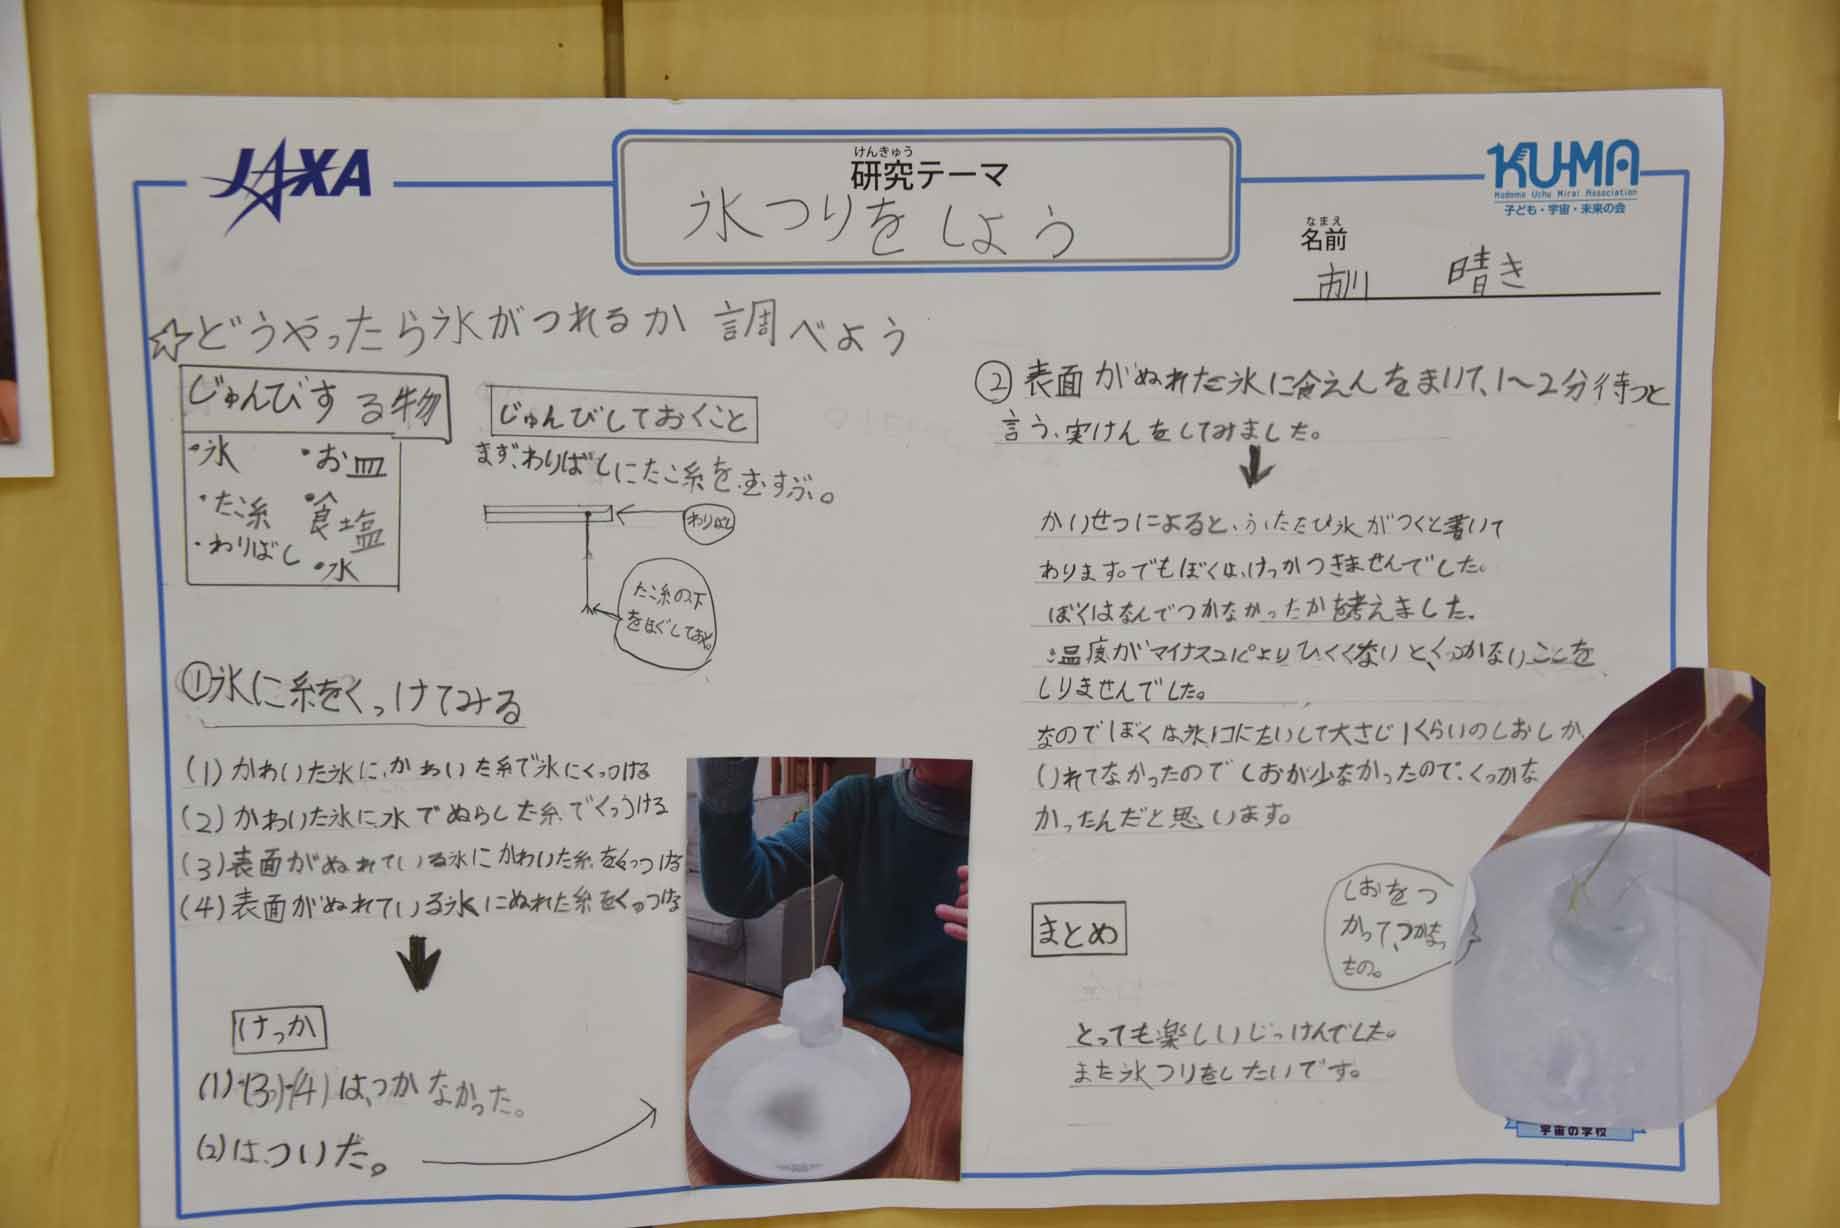 JAXA
けんきゅう
研究テーマ
氷つりをしよう
KU-MA
Kodomo Uchu Mirai Association
子ども・宇宙・未来の会
なまえ
名前
市川 晴き
☆どうやったら氷がつれるか 調べよう
じゅんびする物
・氷 ・お皿
・たこ糸 ・食塩
・わりばし ・水
じゅんびしておくこと
まず、わりばしにたこ糸をむすぶ。
わりばし
たこ糸の下
をほぐしておく。
①氷に糸をくっけてみる
(1)かわいた氷に、かわいた糸で氷にくっつける
(2)かわいた氷に、水でぬらした糸でくっつける
(3)表面がぬれている氷にかわいた糸をくっつける
(4)表面がぬれている氷にぬれた糸をくっつける
けっか
(1)・(3)・(4)は、つかなかった。
(2)は、ついだ。
②表面がぬれた氷に食えんをまいて、1〜2分待つと
言う、実けんをしてみました。
かいせつによると、ふたたび氷がつくと書いて
わります。でもぼくは、けっかつきませんでした。
ぼくはなんでつかなかったかを考えました。
温度がマイナス21℃よりひくくないと、くっつかないことを
しりませんでした。
なのでぼくは氷1コにたいして大さじ1くらいのしおしか、
いれてなかったのでしおが少なかったので、くっかな
かったんだと思います。
しおをつ
かって、つかなっ
たの。
まとめ
とっても楽しいじっけんでした。
また氷つりをしたいです。
宇宙の学校